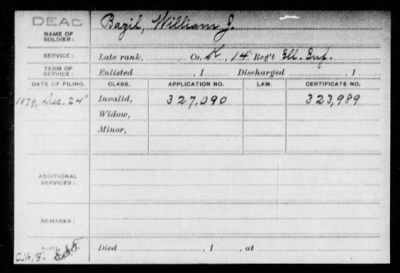 DEAD
NAME OF SOLDIER: Bazil, William J.
SERVICE: Late rank, Co. K, 14 Reg't Ill. Inf.
TERM OF SERVICE: Enlisted , 1 Discharged , 1
DATE OF FILING. CLASS. APPLICATION NO. LAW. CERTIFICATE NO.
1879, Dec. 24" Invalid, 327,090 323,989
Widow,
Minor,
ADDITIONAL SERVICES:
REMARKS:
Died , 1 , at